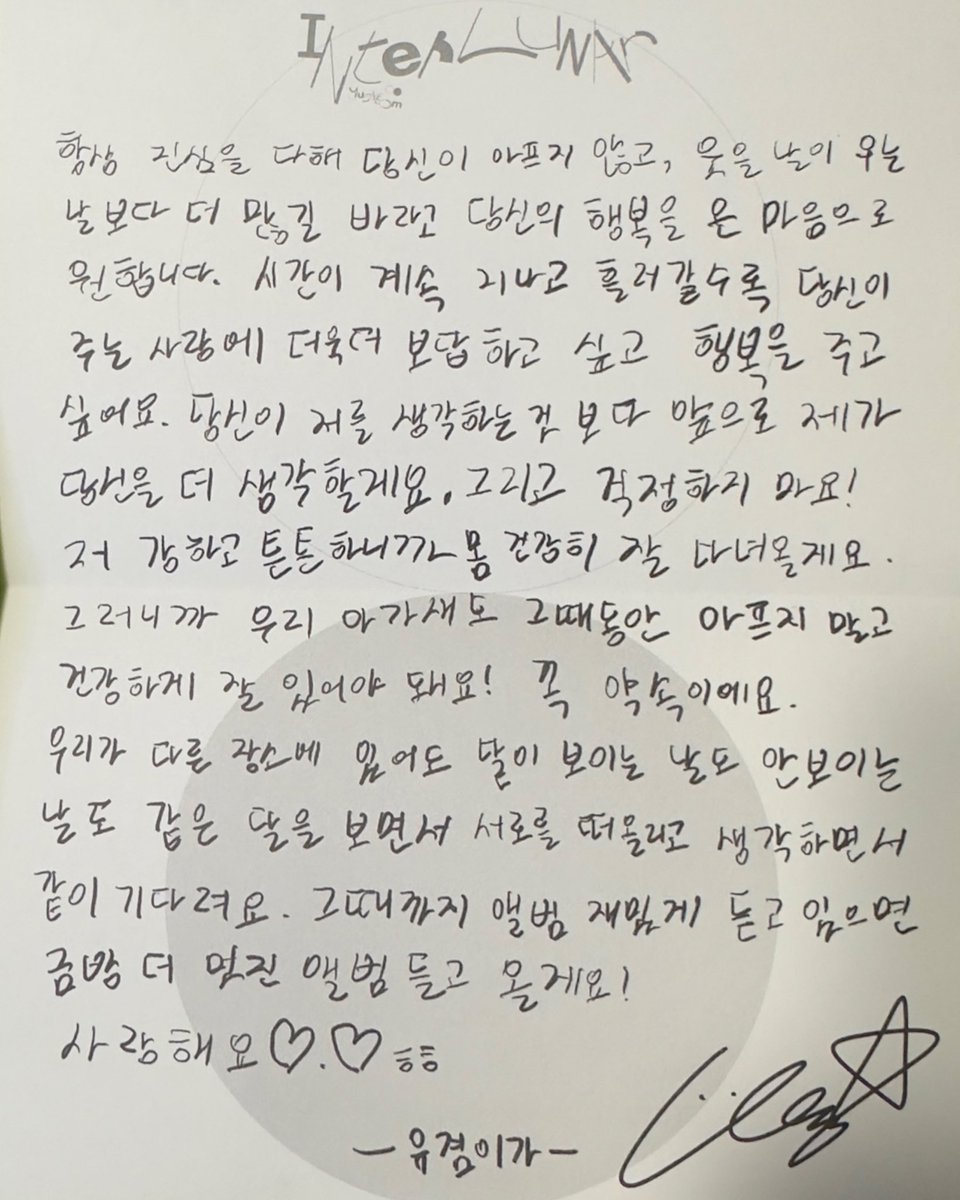 INterLUNAr
항상 진심을 다해 당신이 아프지 않고, 웃을 날이 우는
날보다 더 많길 바라고 당신의 행복을 온 마음으로
원합니다. 시간이 계속 지나고 흘러갈수록 당신이
주는 사랑에 더욱더 보답하고 싶고 행복을 주고
싶어요. 당신이 저를 생각하는 것 보다 앞으로 제가
당신을 더 생각할게요. 그리고 걱정하지 마요!
저 강하고 튼튼하니까 몸 건강히 잘 다녀올게요.
그러니까 우리 아가새도 그때동안 아프지 말고
건강하게 잘 있어야 돼요! 꼭 약속이에요.
우리가 다른 장소에 있어도 달이 보이는 날도 안보이는
날도 같은 달을 보면서 서로를 떠올리고 생각하면서
같이 기다려요. 그때까지 앨범 재밌게 듣고 있으면
금방 더 멋진 앨범 들고 올게요!
사랑해요♡.♡ ㅎㅎ
-유겸이가-